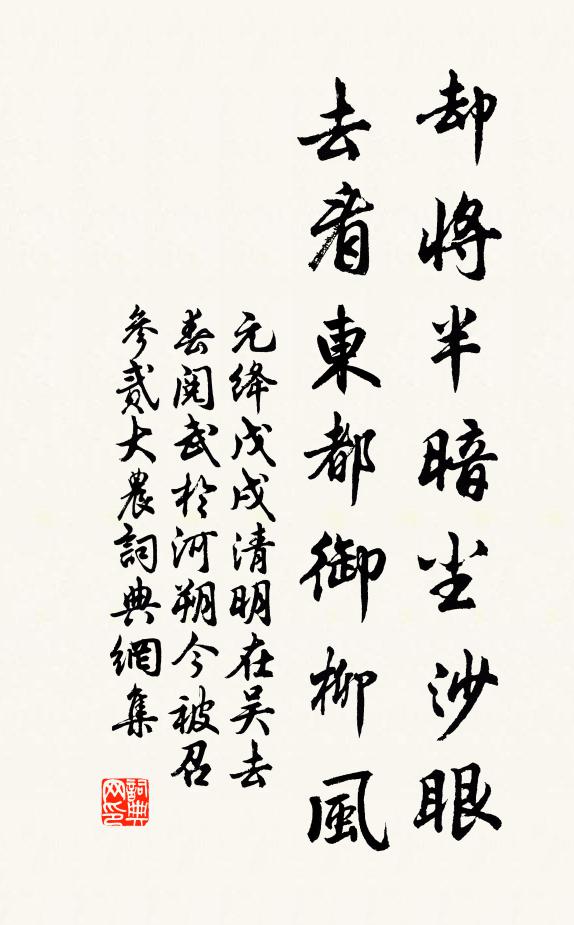 却將半暗尘沙眼
去看東都御柳風
元绛戊戌清明在吴去
春阅武於河朔今被召
參貳大農詞典網集
詞典
网印